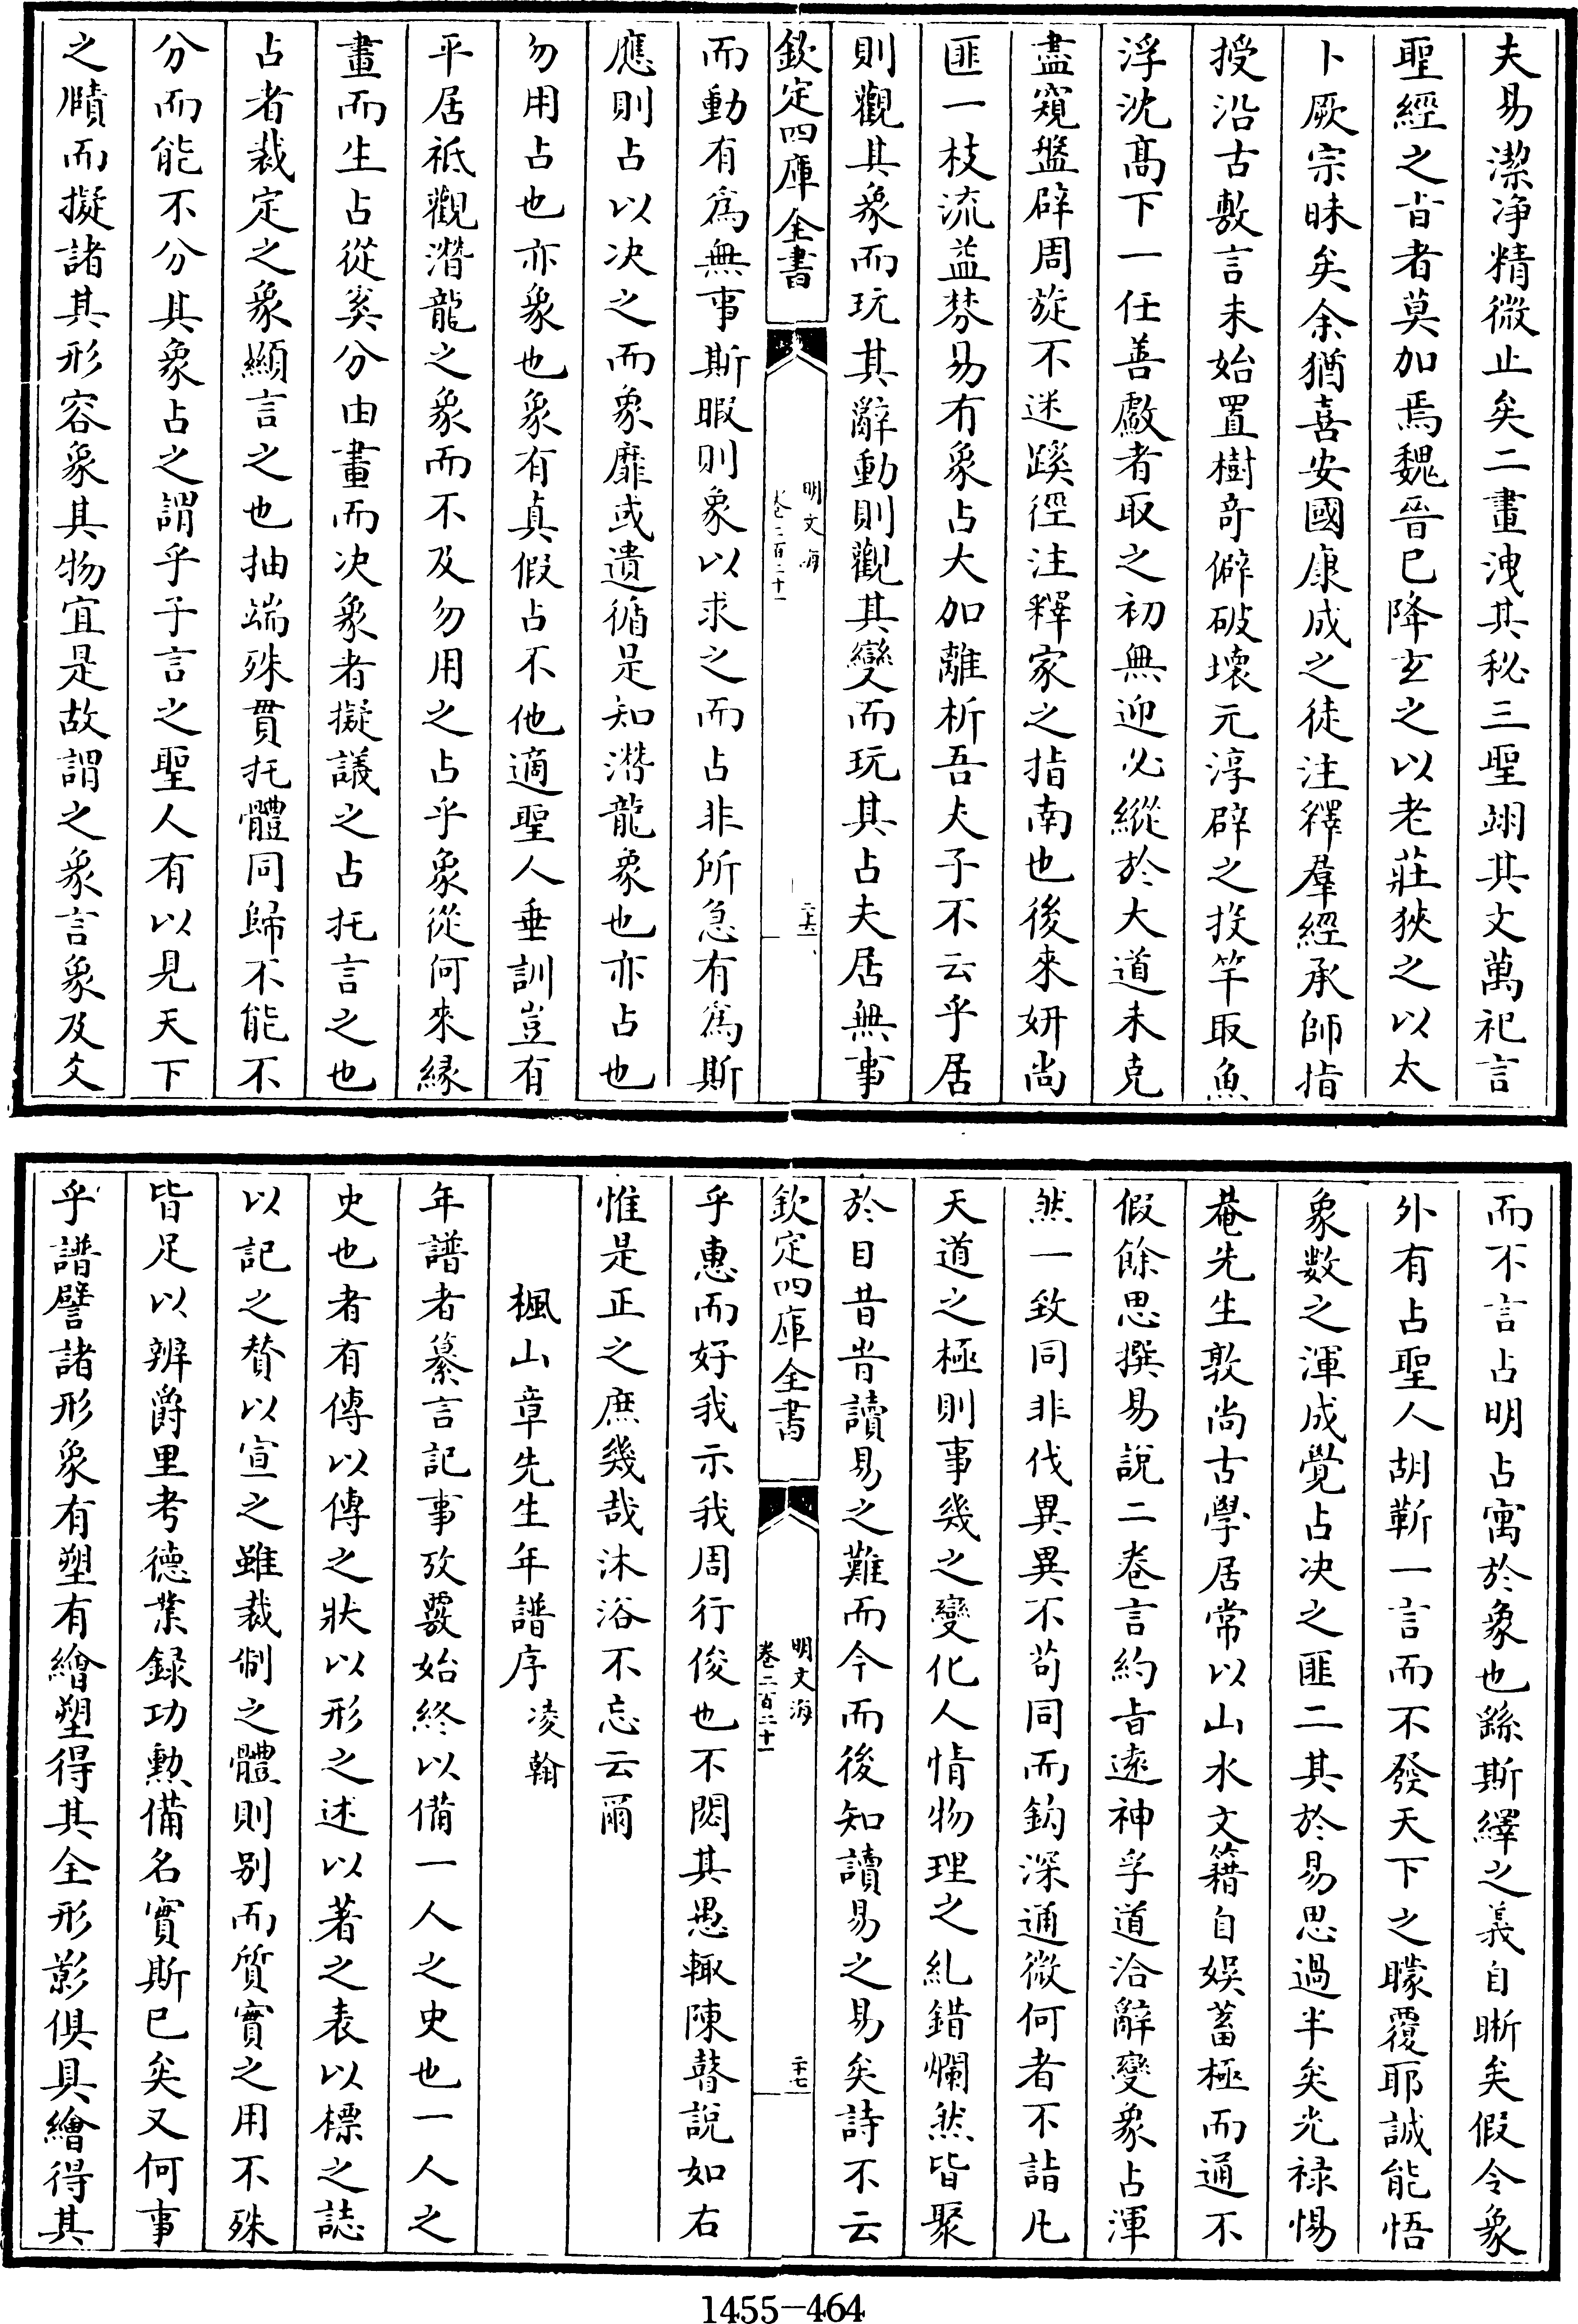 夫易潔净精微止矣二畫洩其秘三聖翊其文萬祀言
聖經之㫖者莫加焉魏晉已降玄之以老莊狹之以太
卜厥宗昧矣余猶喜安國康成之徒注釋羣經承師指
授沿古敷言未始置樹奇僻破壊元淳辟之投竿取魚
浮沈髙下一任善䖍者取之初無迎必縱於大道未克
盡窺盤辟周旋不迷蹊徑注釋家之指南也後來妍尚
匪一枝流益棼易有象占大加離析吾夫子不云乎居
則觀其象而玩其辭動則觀其變而玩其占夫居無事
欽定四庫全書
明文海
卷二百二十一
二十六
而動有為無事斯暇則象以求之而占非所急有為斯
應則占以决之而象靡或遺循是知潛龍象也亦占也
勿用占也亦象也象有真假占不他適聖人垂訓豈有
平居祗觀潛龍之象而不及勿用之占乎象從何來縁
畫而生占從奚分由畫而决象者擬議之占托言之也
占者裁定之象顯言之也抽端殊貫托體同歸不能不
分而能不分其象占之謂乎子言之聖人有以見天下
之賾而擬諸其形容象其物宜是故謂之象言象及爻
而不言占明占寓於象也繇斯繹之義自晰矣假令象
外有占聖人胡靳一言而不發天下之矇覆耶誠能悟
象數之渾成覺占决之匪二其於易思過半矣光禄惕
菴先生敦尚古學居常以山水文籍自娱蓄極而通不
假餘思撰易說二卷言約㫖逺神孚道洽辭變象占渾
然一致同非伐異異不苟同而鈎深通微何者不詣凡
天道之極則事幾之變化人情物理之糺錯爛然皆聚
於目昔甞讀易之難而今而後知讀易之易矣詩不云
欽定四庫全書
明文海
卷二百二十一
二十七
乎惠而好我示我周行俊也不閟其愚輙陳瞽說如右
惟是正之庶幾哉沐浴不忘云爾
楓山章先生年譜序 凌翰
年譜者纂言記事攷覈始終以備一人之史也一人之
史也者有傳以傳之狀以形之述以著之表以標之誌
以記之賛以宣之雖裁制之體則别而質實之用不殊
皆足以辨爵里考德業録功勲備名實斯已矣又何事
乎譜譬諸形象有塑有繪塑得其全形影俱具繪得其
1455—464